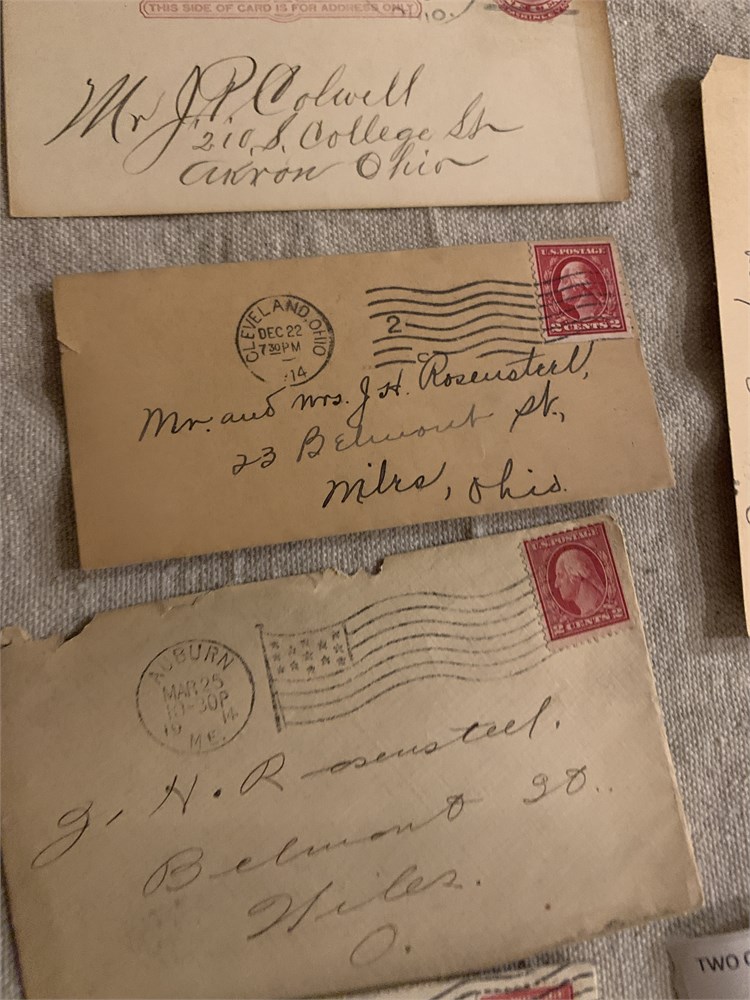 THIS SIDE OF CARD IS FOR ADDRESS ONLY
Mr J. P. Colwell
210, S. College St
Akron Ohio
U.S. POSTAGE
2 CENTS 2
CLEVELAND, OHIO
DEC 22
7 30 PM
14
2
Mr. and Mrs. J. H. Rosensteel,
23 Belmont St.,
Niles, Ohio.
U.S. POSTAGE
2 CENTS 2
AUBURN
MAR 25
10-30P
19 14
ME.
J. H. Rosensteel.
Belmont St..
Niles.
O.
TWO